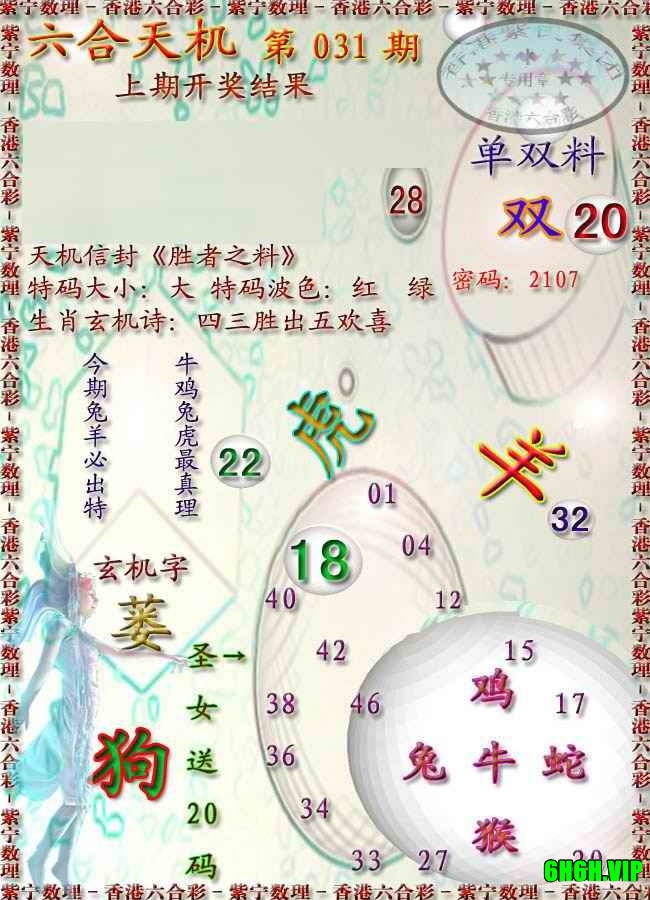 紫宁数理－香港六合彩－紫宁数理－香港六合彩－紫宁数理－香港六合彩
六合天机 第 031 期
上期开奖结果
香港紫色集团
专用章
香港六合彩
单双料
28
双 20
天机信封《胜者之料》
特码大小：大 特码波色：红 绿
密码：2107
生肖玄机诗：四三胜出五欢喜
今期兔羊必出特
牛鸡兔虎最真理
22
虎
羊
32
01
18
04
玄机字
萎
40
12
圣女送20码
→
42
15
鸡
38
46
17
狗
兔 牛 蛇
36
34
猴
33
27
6H6H.VIP
紫宁数理－香港六合彩－紫宁数理－香港六合彩－紫宁数理－香港六合彩